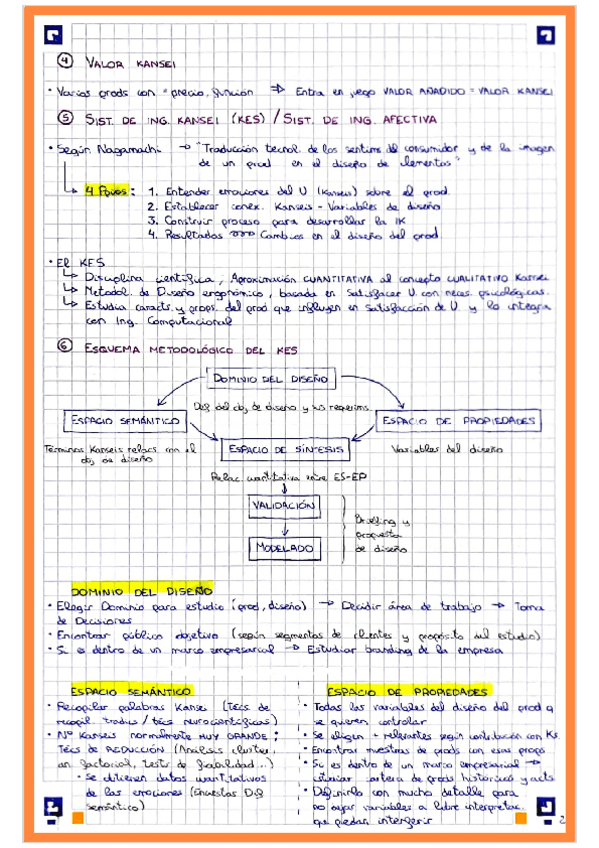 ④ VALOR KANSEI
• Varios prods con = precio, función ⇒ Entra en juego VALOR AÑADIDO = VALOR KANSEI
⑤ SIST. DE ING. KANSEI (KES) / SIST. DE ING. AFECTIVA
• Según Nagamachi → "Traducción tecnol. de los sentims del consumidor y de la imagen
de un prod en el diseño de elementos"
4 Pasos: 1. Entender emociones del U (Kansei) sobre el prod.
2. Establecer conex. Kanseis - Variables de diseño
3. Construir proceso para desarrollar la IK
4. Resultados Cambios en el diseño del prod
• El KES
↳ Disciplina científica, Aproximación CUANTITATIVA al concepto CUALITATIVO Kansei
↳ Metodol. de Diseño ergonómico, basada en Satisfacer U. con neces. psicológicas.
↳ Estudia caracts. y props. del prod que influyen en Satisfacción de U. y lo integra
con Ing. Computacional
⑥ ESQUEMA METODOLÓGICO DEL KES
DOMINIO DEL DISEÑO
Def del obj de diseño y sus requerims.
ESPACIO SEMÁNTICO
ESPACIO DE PROPIEDADES
Términos Kanseis relacs con el
obj de diseño
ESPACIO DE SÍNTESIS
Variables del diseño
Relac. cuantitativa entre ES-EP
VALIDACIÓN
Briefing y
propuesta
de diseño
MODELADO
DOMINIO DEL DISEÑO
• Elegir Dominio para estudio (prod, diseño) → Decidir área de trabajo → Toma
de Decisiones
• Encontrar público objetivo (según segmentos de clientes y propósito del estudio)
• Si es dentro de un marco empresarial → Estudiar branding de la empresa
ESPACIO SEMÁNTICO
• Recopilar palabras Kansei (Técs de
recopil. tradics / técs neurocientíficas)
• Nº Kanseis normalmente MUY GRANDE:
Técs de REDUCCIÓN (Análisis cluster,
an. factorial, tests de fiabilidad..)
• Se obtienen datos cuantitativos
de las emociones (Encuestas Dif
semántico)
ESPACIO DE PROPIEDADES
• Todas las variables del diseño del prod q
se quieren controlar
• Se eligen + relevantes según contribución con Ks
• Encontrar muestras de prods con esas props
• Si es dentro de un marco empresarial →
cartera de prods históricos y acts
• Definirlo con mucho detalle para
no dejar variables a libre interpretac.
que puedan interferir
2